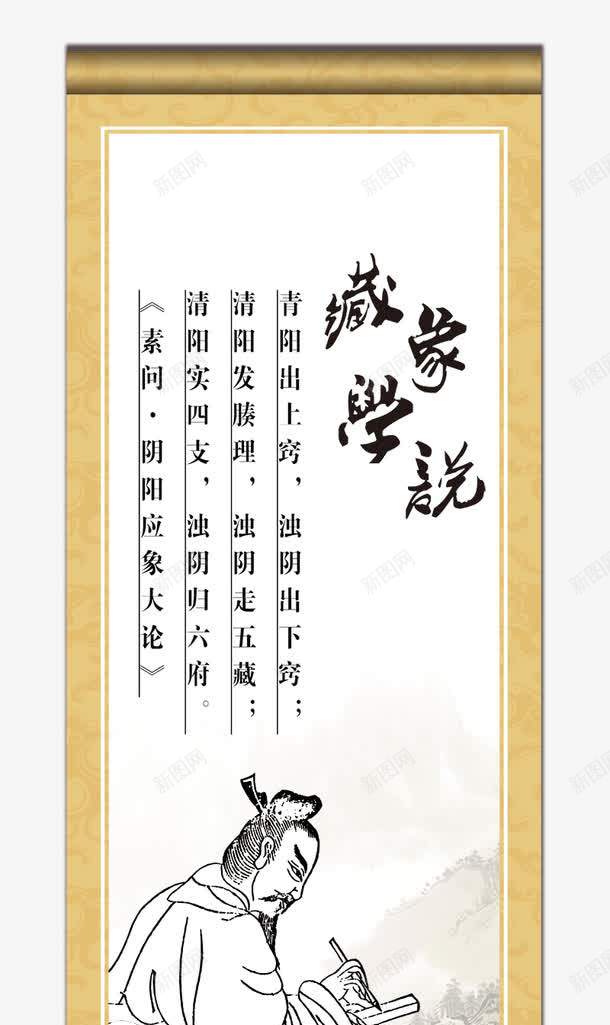 藏象學説
青阳出上窍，浊阴出下窍；
清阳发腠理，浊阴走五藏；
清阳实四支，浊阴归六府。
《素问·阴阳应象大论》
新图网